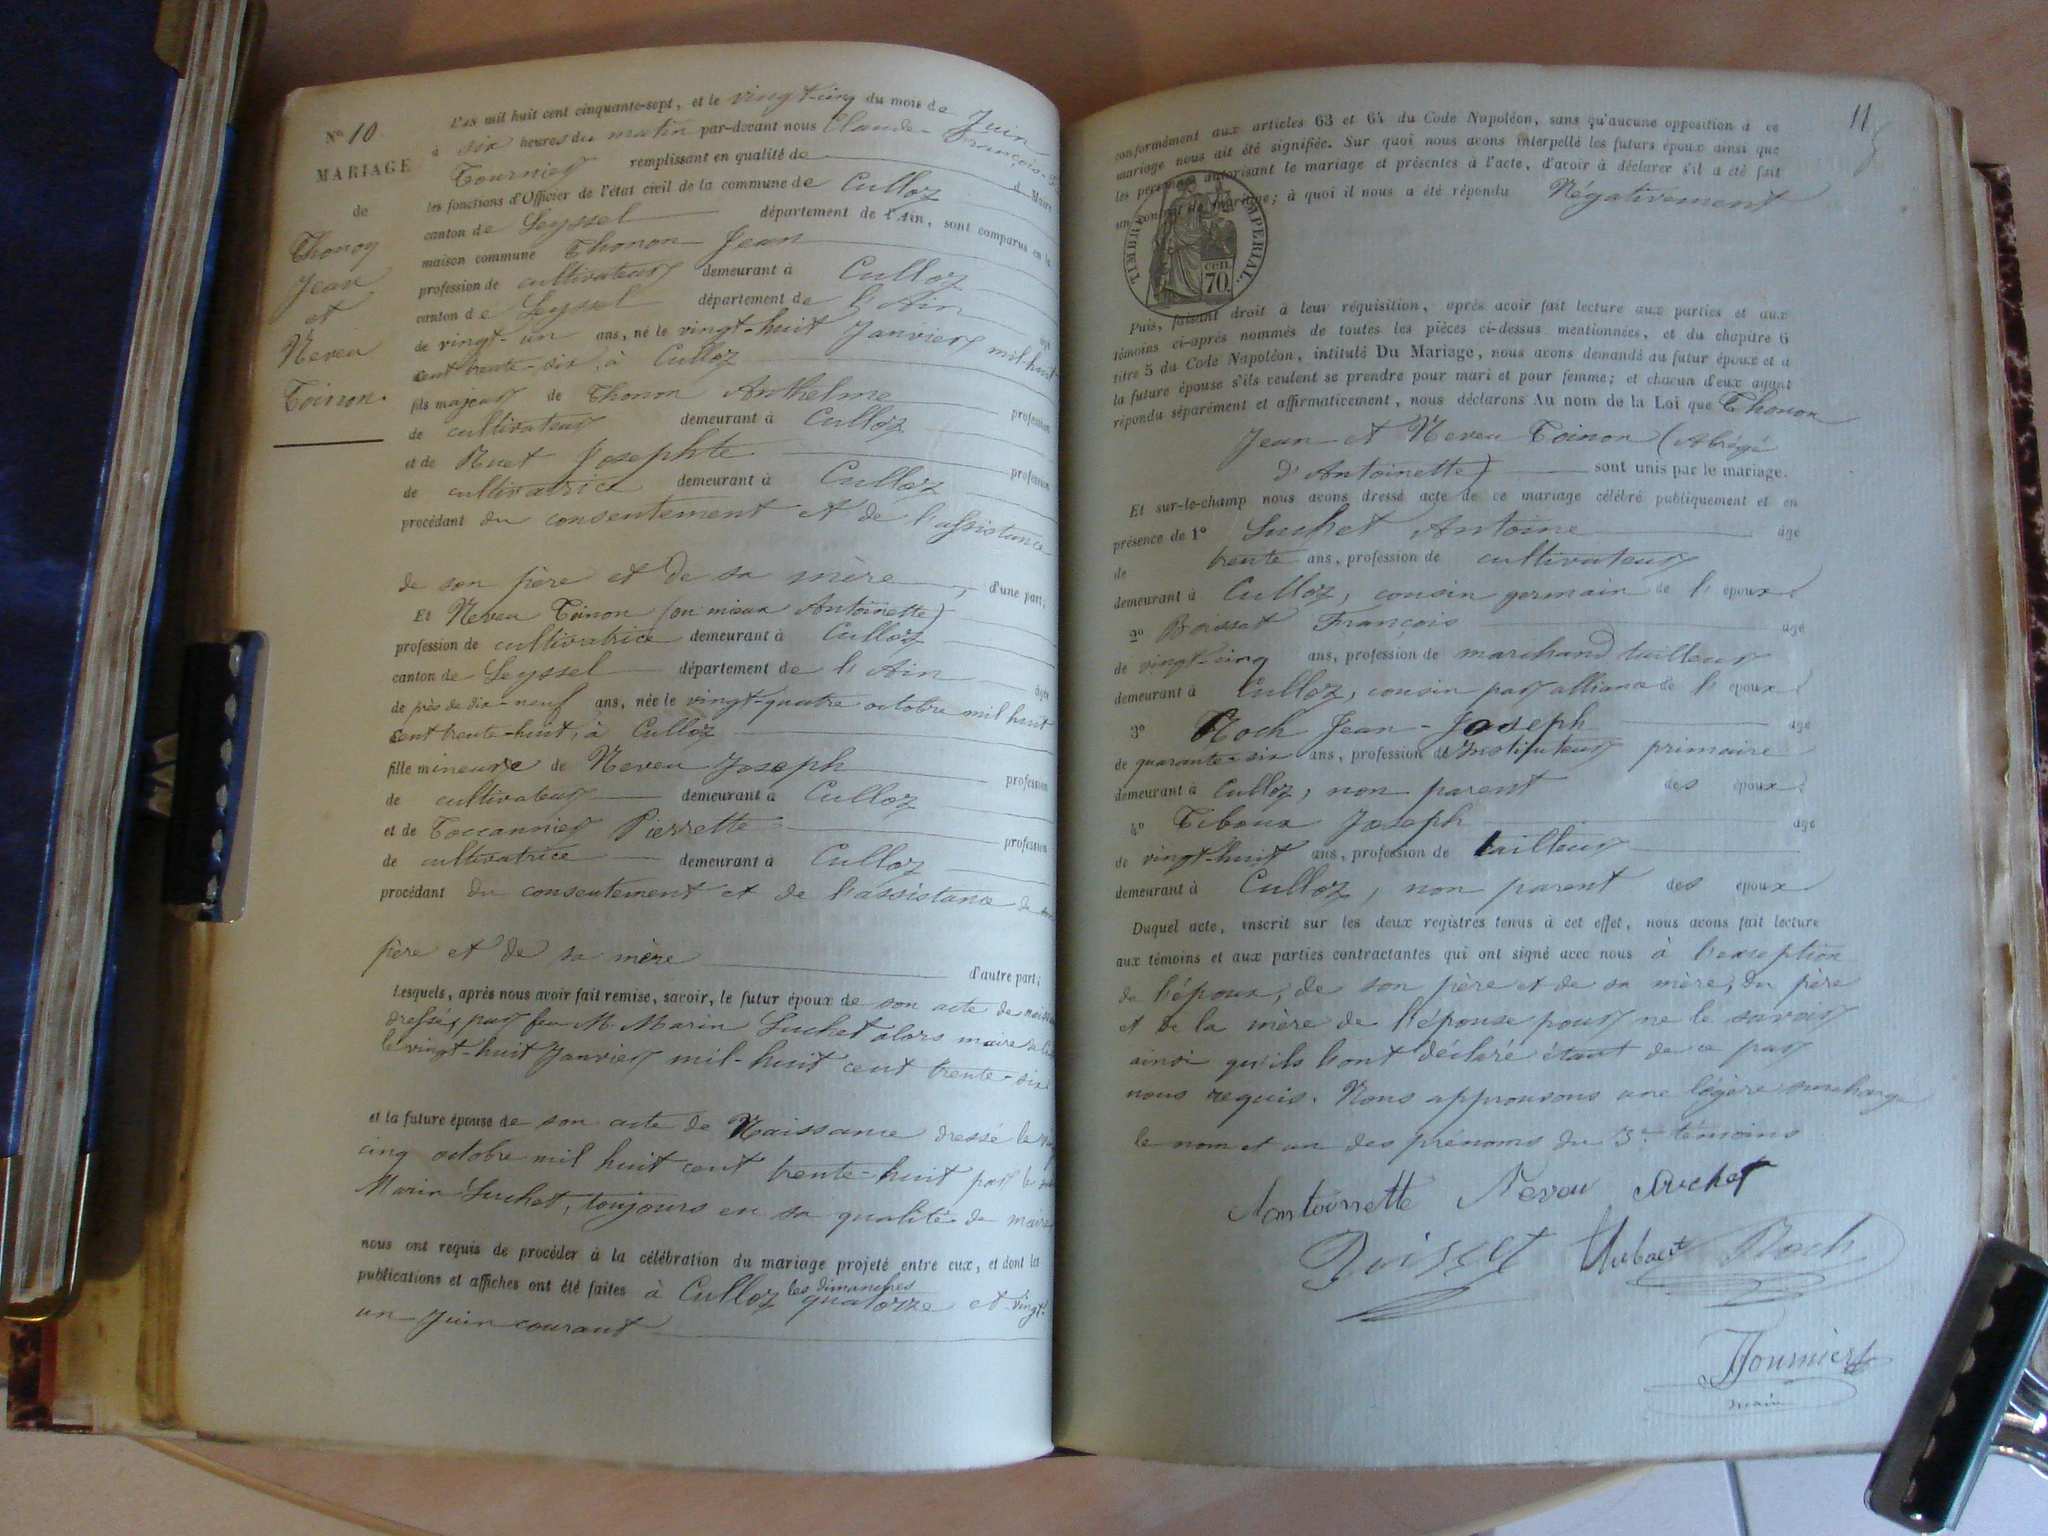 N° 10
MARIAGE
de
Thonon
Jean
et
Neveu
Toinon.
L'an mil huit cent cinquante-sept, et le vingt-cinq du mois de Juin
à six heures du matin par-devant nous Claude-François
Fournier remplissant en qualité de d Maire
les fonctions d'Officier de l'état civil de la commune de Culloz
canton de Seyssel département de l'Ain, sont comparus en la
maison commune Thonon Jean
profession de cultivateur demeurant à Culloz
canton de Seyssel département de l'Ain
de vingt-un ans, né le vingt-huit Janvier mil-huit-
cent trente-six, à Culloz
fils majeur de Thonon Anthelme profession
de cultivateur demeurant à Culloz
et de Ruet Josephte profession
de cultivatrice demeurant à Culloz
procédant du consentement et de l'assistance
de son père et de sa mère, d'une part;
Et Neveu Toinon (ou mieux Antoinette)
profession de cultivatrice demeurant à Culloz
canton de Seyssel département de l'Ain âgée
de près de dix-neuf ans, née le vingt-quatre octobre mil huit
cent trente-huit, à Culloz
fille mineure de Neveu Joseph profession
de cultivateur demeurant à Culloz
et de Toccannier Pierrette profession
de cultivatrice demeurant à Culloz
procédant du consentement et de l'assistance de
père et de sa mère d'autre part;
Lesquels, après nous avoir fait remise, savoir, le futur époux de son acte de
dressé, par feu M. Marin Suchet alors maire
le vingt-huit Janvier mil-huit cent trente-six
et la future épouse de son acte de Naissance dressé le
cinq octobre mil huit cent trente-huit par le
Marin Suchet, toujours en sa qualité de maire
nous ont requis de procéder à la célébration du mariage projeté entre eux, et dont les
publications et affiches ont été faites à Culloz les dimanches quatorze et vingt-
un Juin courant
11
conformément aux articles 63 et 64 du Code Napoléon, sans qu'aucune opposition à ce
mariage nous ait été signifiée. Sur quoi nous avons interpellé les futurs époux ainsi que
les personnes autorisant le mariage et présentes à l'acte, d'avoir à déclarer s'il a été fait
un contrat de mariage; à quoi il nous a été répondu Négativement
TIMBRE IMPERIAL.
70.
cen.
Puis, faisant droit à leur réquisition, après avoir fait lecture aux parties et aux
témoins ci-après nommés de toutes les pièces ci-dessus mentionnées, et du chapitre 6
titre 5 du Code Napoléon, intitulé Du Mariage, nous avons demandé au futur époux et à
la future épouse s'ils veulent se prendre pour mari et pour femme; et chacun d'eux ayant
répondu séparément et affirmativement, nous déclarons Au nom de la Loi que Thonon
Jean et Neveu Toinon (Abrégé
d'Antoinette) sont unis par le mariage.
Et sur-le-champ nous avons dressé acte de ce mariage célébré publiquement et en
présence de 1° Suchet Antoine âgé
de trente ans, profession de cultivateur
demeurant à Culloz, cousin germain de l'époux
2° Boisset François âgé
de vingt-cinq ans, profession de marchand tailleur
demeurant à Culloz, cousin par alliance de l'époux
3° Roch Jean-Joseph âgé
de quarante-six ans, profession de Instituteur primaire
demeurant à Culloz, non parent des époux
4° Tiboux Joseph âgé
de vingt-huit ans, profession de tailleur
demeurant à Culloz, non parent des époux
Duquel acte, inscrit sur les deux registres tenus à cet effet, nous avons fait lecture
aux témoins et aux parties contractantes qui ont signé avec nous à l'exception
de l'époux, de son père et de sa mère, du père
et de la mère de l'épouse pour ne le savoir
ainsi qu'ils l'ont déclaré étant de ce par
nous requis. Nous approuvons une légère surcharge
le nom et un des prénoms du 3e témoins
Antoinette Neveu Suchet
Boisset Thibout Roch
Fournier
maire